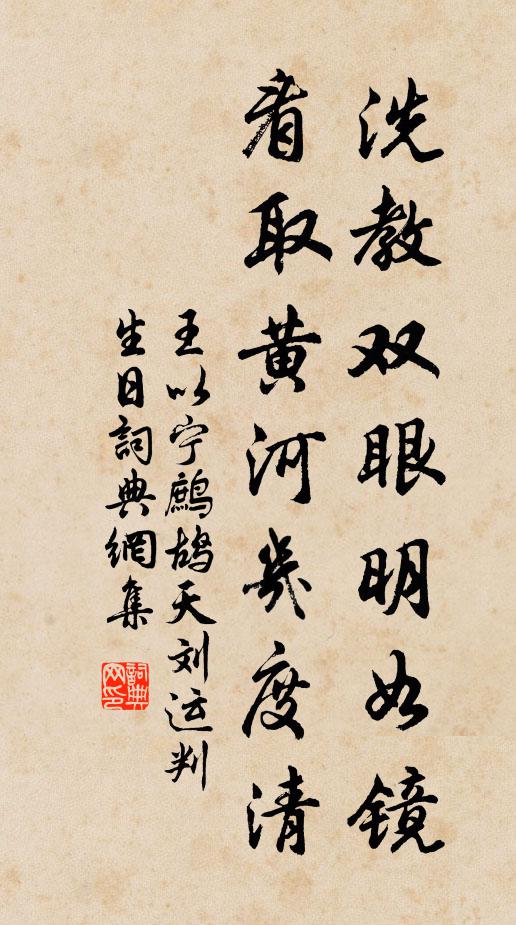 洗教双眼明如镜
看取黄河几度清
王以宁鹧鸪天刘运判
生日詞典網集
詞典
网印